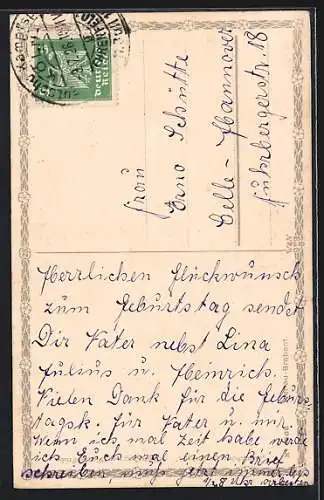 Deutsches Reich
5
Frau
Erna Schütte
Celle-Hannover
Fuhrbergerstr 18
Herzlichen Glückwunsch
zum Geburtstag sendet
Dir Vater nebst Lina
Julius u. Heinrich.
Vielen Dank für die Geburs
tagsk. für Vater u. mir.
Wenn ich mal Zeit habe werde
ich Euch mal einen Brief
schreiben, muß jetzt immer bis
1/28 Uhr arbeiten